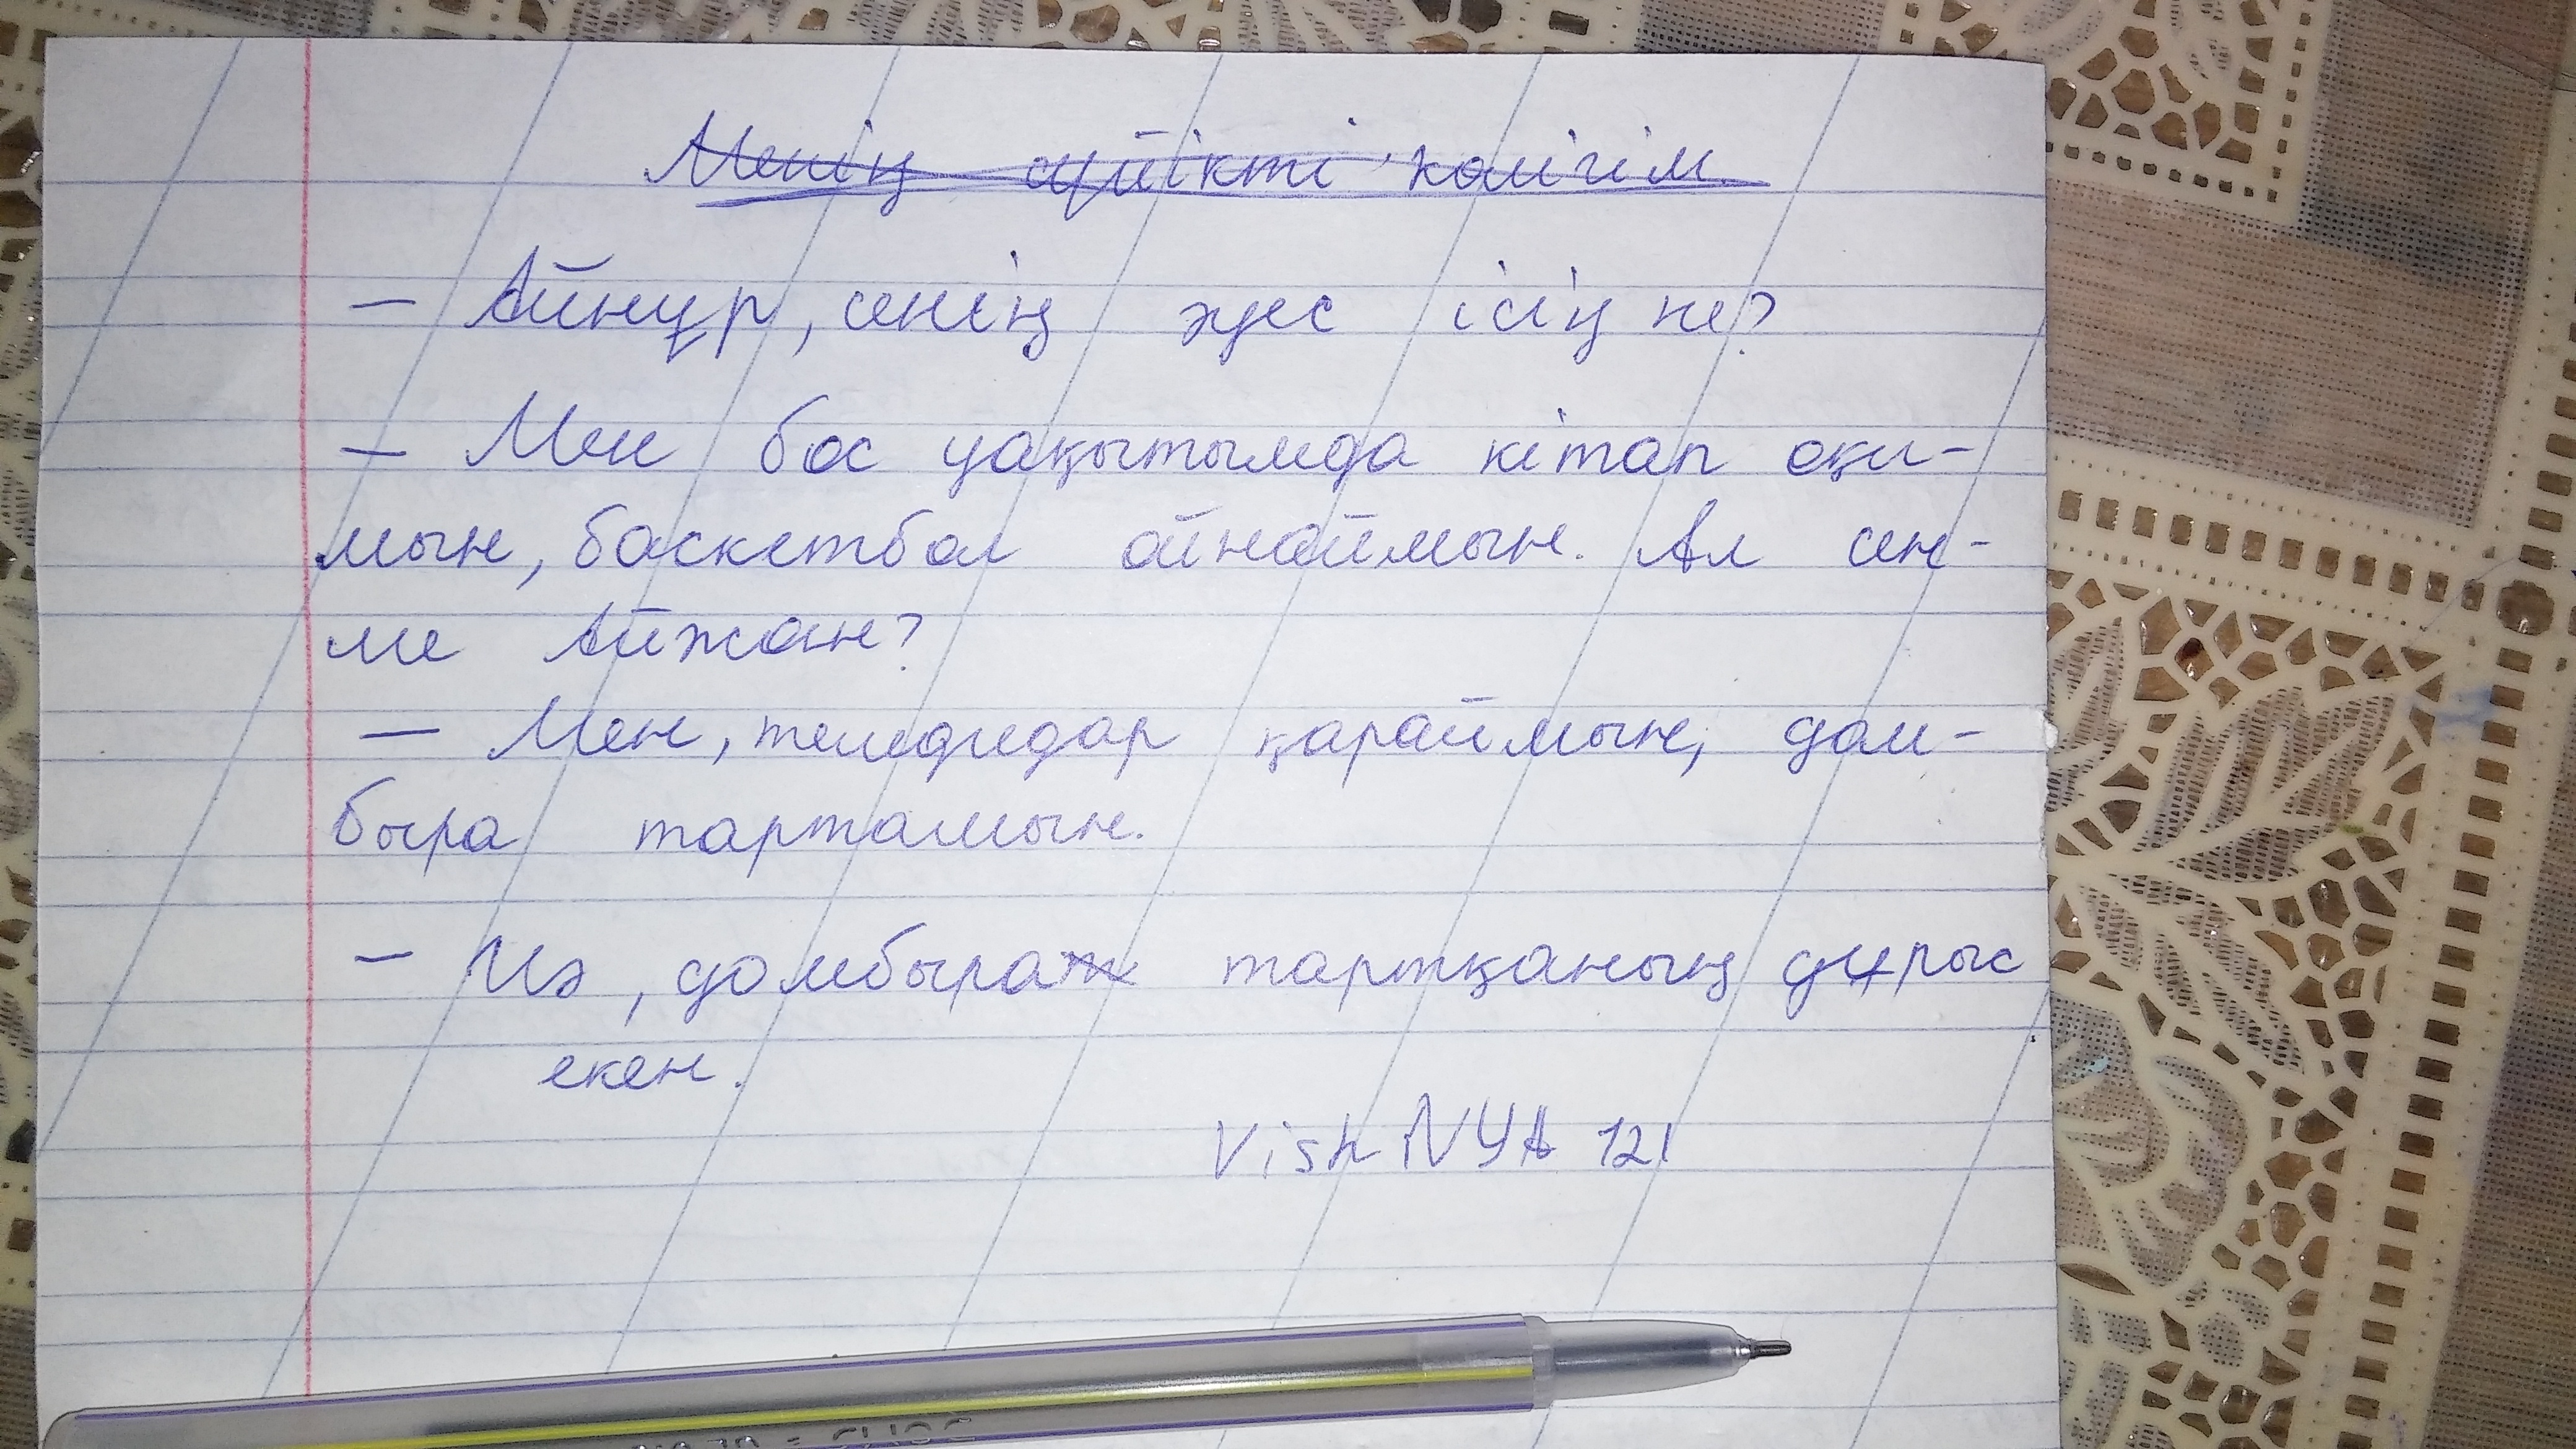 Менің сүйікті көлігім
- Айнұр, сенің хус ісің не?
- Мен бос уақытымда кітап оқи-
мын, баскетбол ойнаймын. Ал сен-
ме Айжан?
- Мен, теледидар қараймын, дом-
быра тартамын.
- Иә, домбыра тартқаның дұрыс
екен.
VishNYA 121